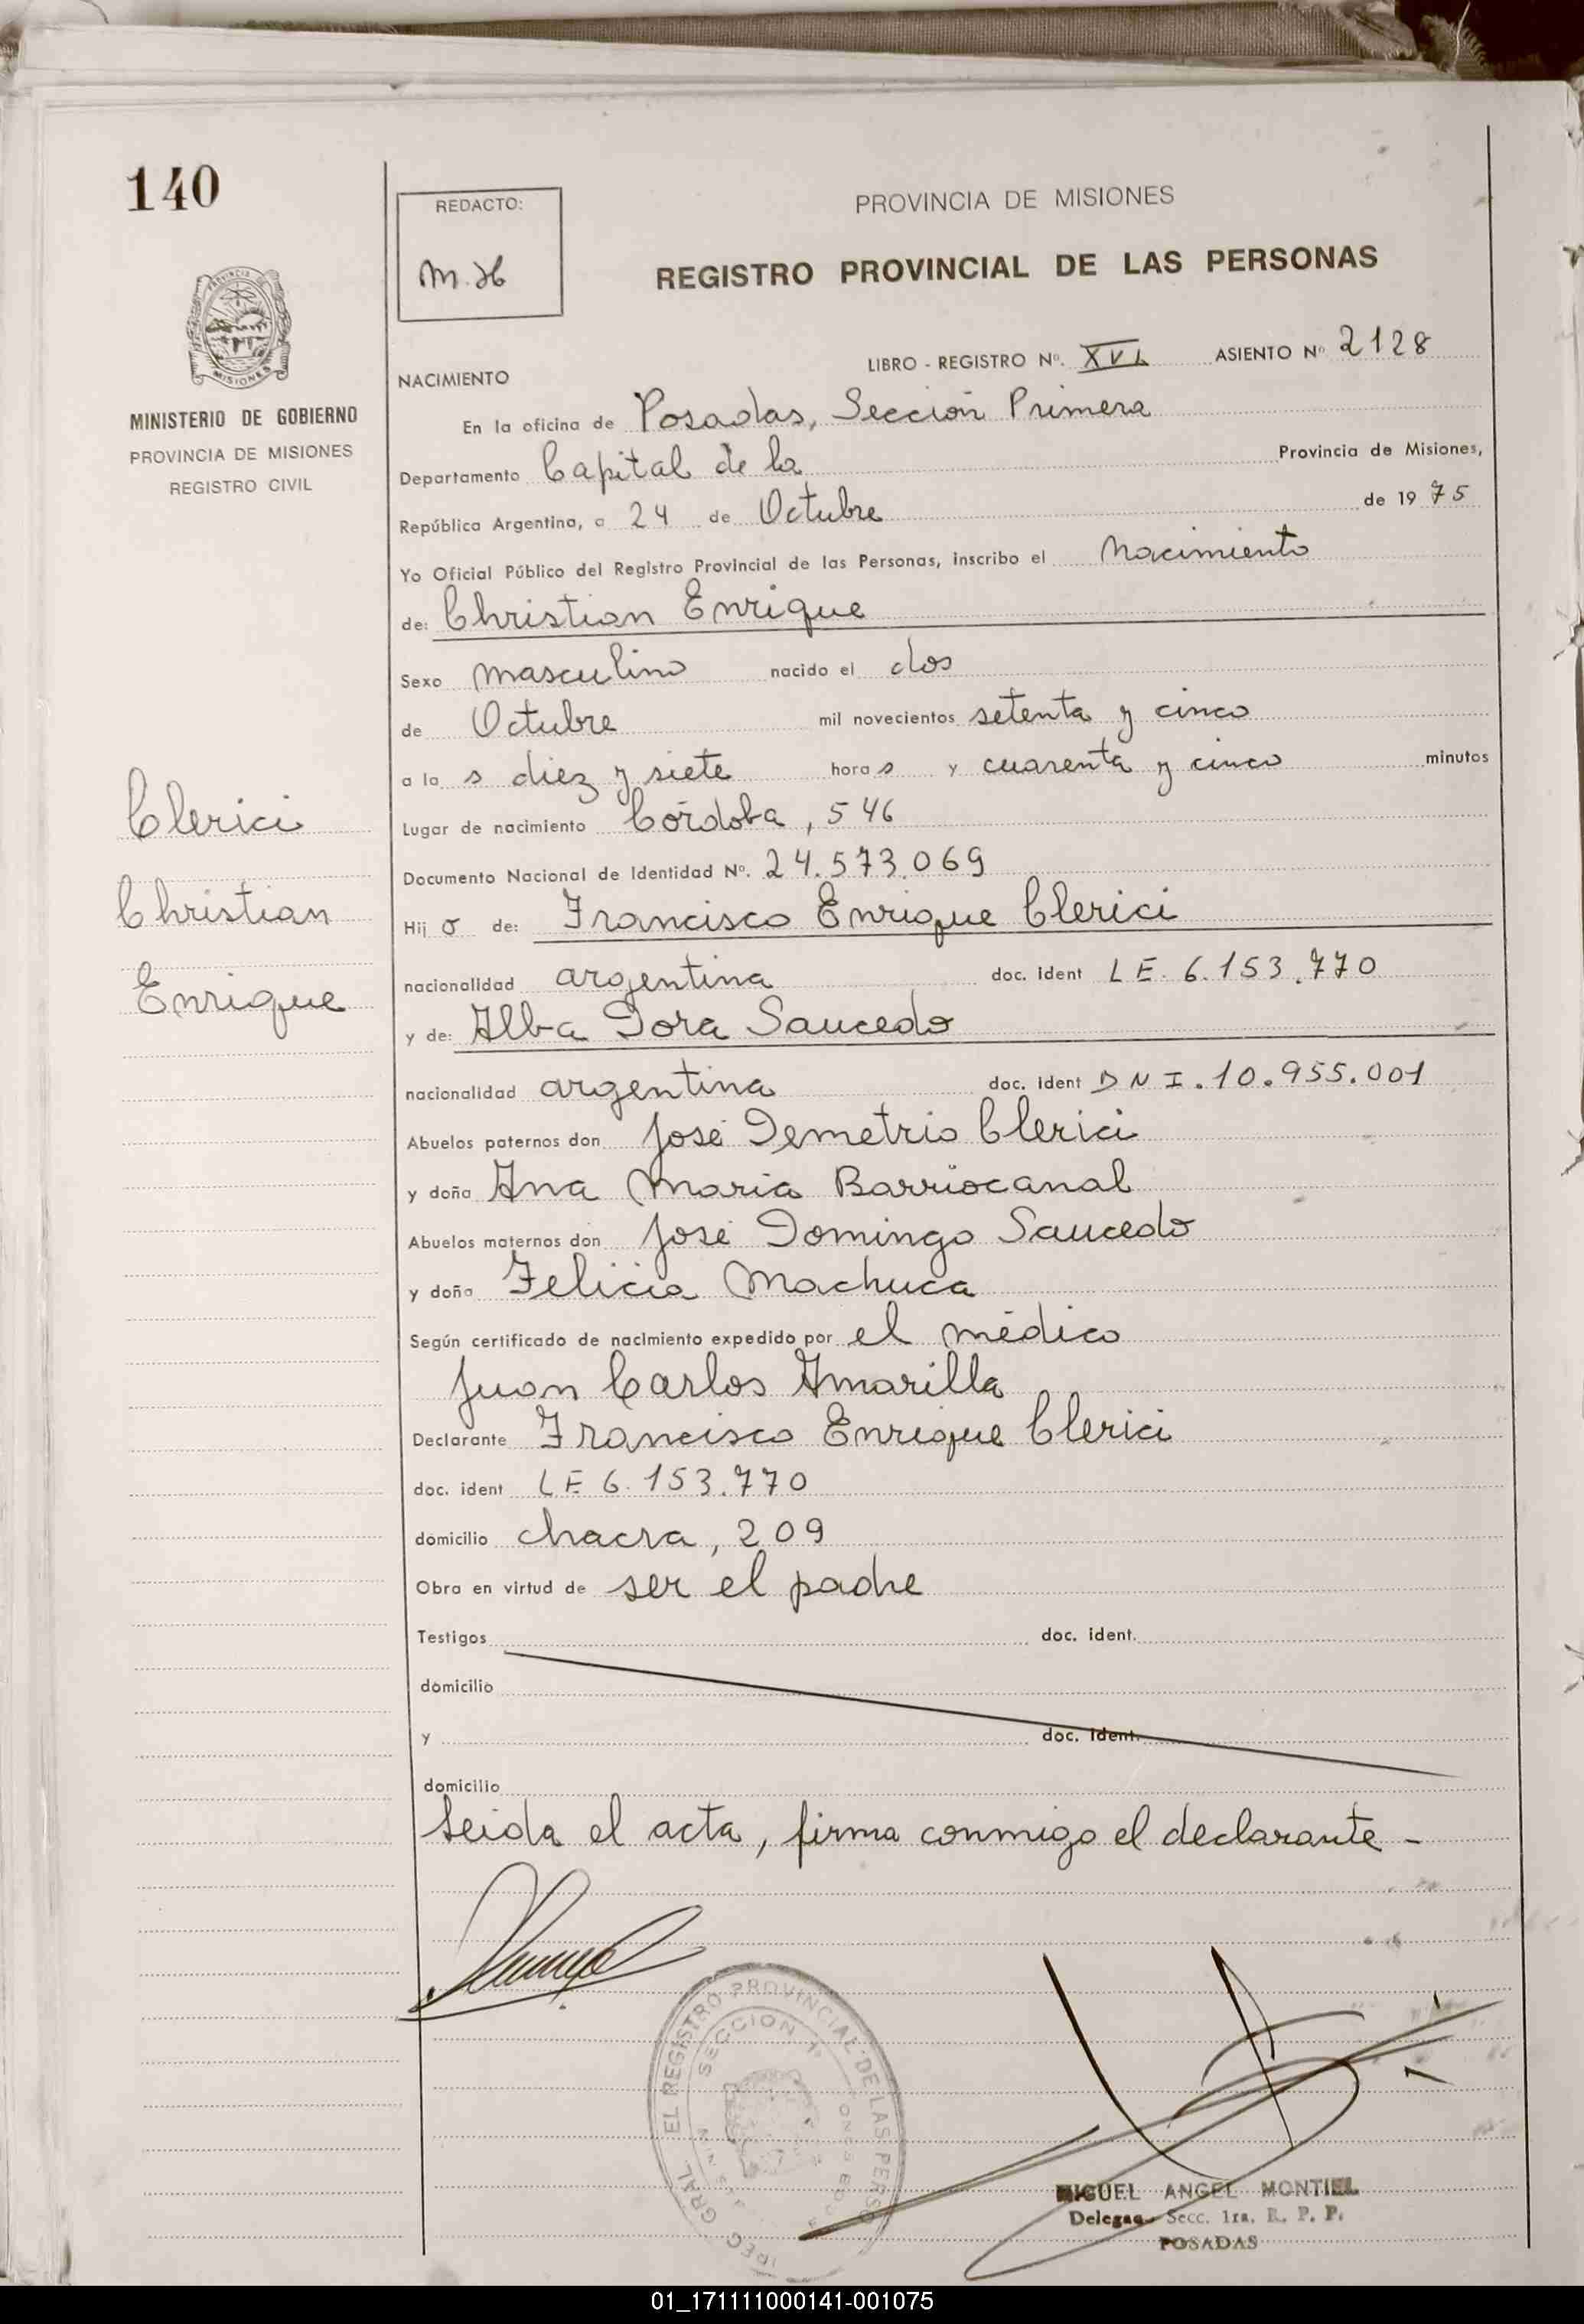 140
REDACTO:
M. H
PROVINCIA DE MISIONES
REGISTRO PROVINCIAL DE LAS PERSONAS
MISIONES
MINISTERIO DE GOBIERNO
PROVINCIA DE MISIONES
REGISTRO CIVIL
LIBRO - REGISTRO Nº. XVI ASIENTO Nº 2128
NACIMIENTO
En la oficina de Posadas, Sección Primera
Departamento Capital de la Provincia de Misiones,
República Argentina, a 24 de Octubre de 1975
Yo Oficial Público del Registro Provincial de las Personas, inscribo el Nacimiento
de: Christian Enrique
Sexo masculino nacido el dos
de Octubre mil novecientos setenta y cinco
a la s diez y siete hora s y cuarenta y cinco minutos
Lugar de nacimiento Córdoba, 546
Documento Nacional de Identidad Nº. 24.573.069
Hij o de: Francisco Enrique Clerici
nacionalidad argentina doc. ident LE. 6.153.770
y de: Alba Dora Saucedo
nacionalidad argentina doc. ident DNI. 10.955.001
Abuelos paternos don José Demetrio Clerici
y doña Ana Maria Barriocanal
Abuelos maternos don José Domingo Saucedo
y doña Felicia Machuca
Según certificado de nacimiento expedido por el médico
Juan Carlos Amarilla
Declarante Francisco Enrique Clerici
doc. ident LE 6.153.770
domicilio chacra, 209
Obra en virtud de ser el padre
Testigos doc. ident.
domicilio
y doc. ident.
domicilio
Leida el acta, firma conmigo el declarante -
Clerici
Christian
Enrique
EL REGISTRO PROVINCIAL DE LAS PERSO
SECCION 1ª
GRAL
MIGUEL ANGEL MONTIEL
Delegado Secc. 1ra. R. P. P.
POSADAS
01_171111000141-001075